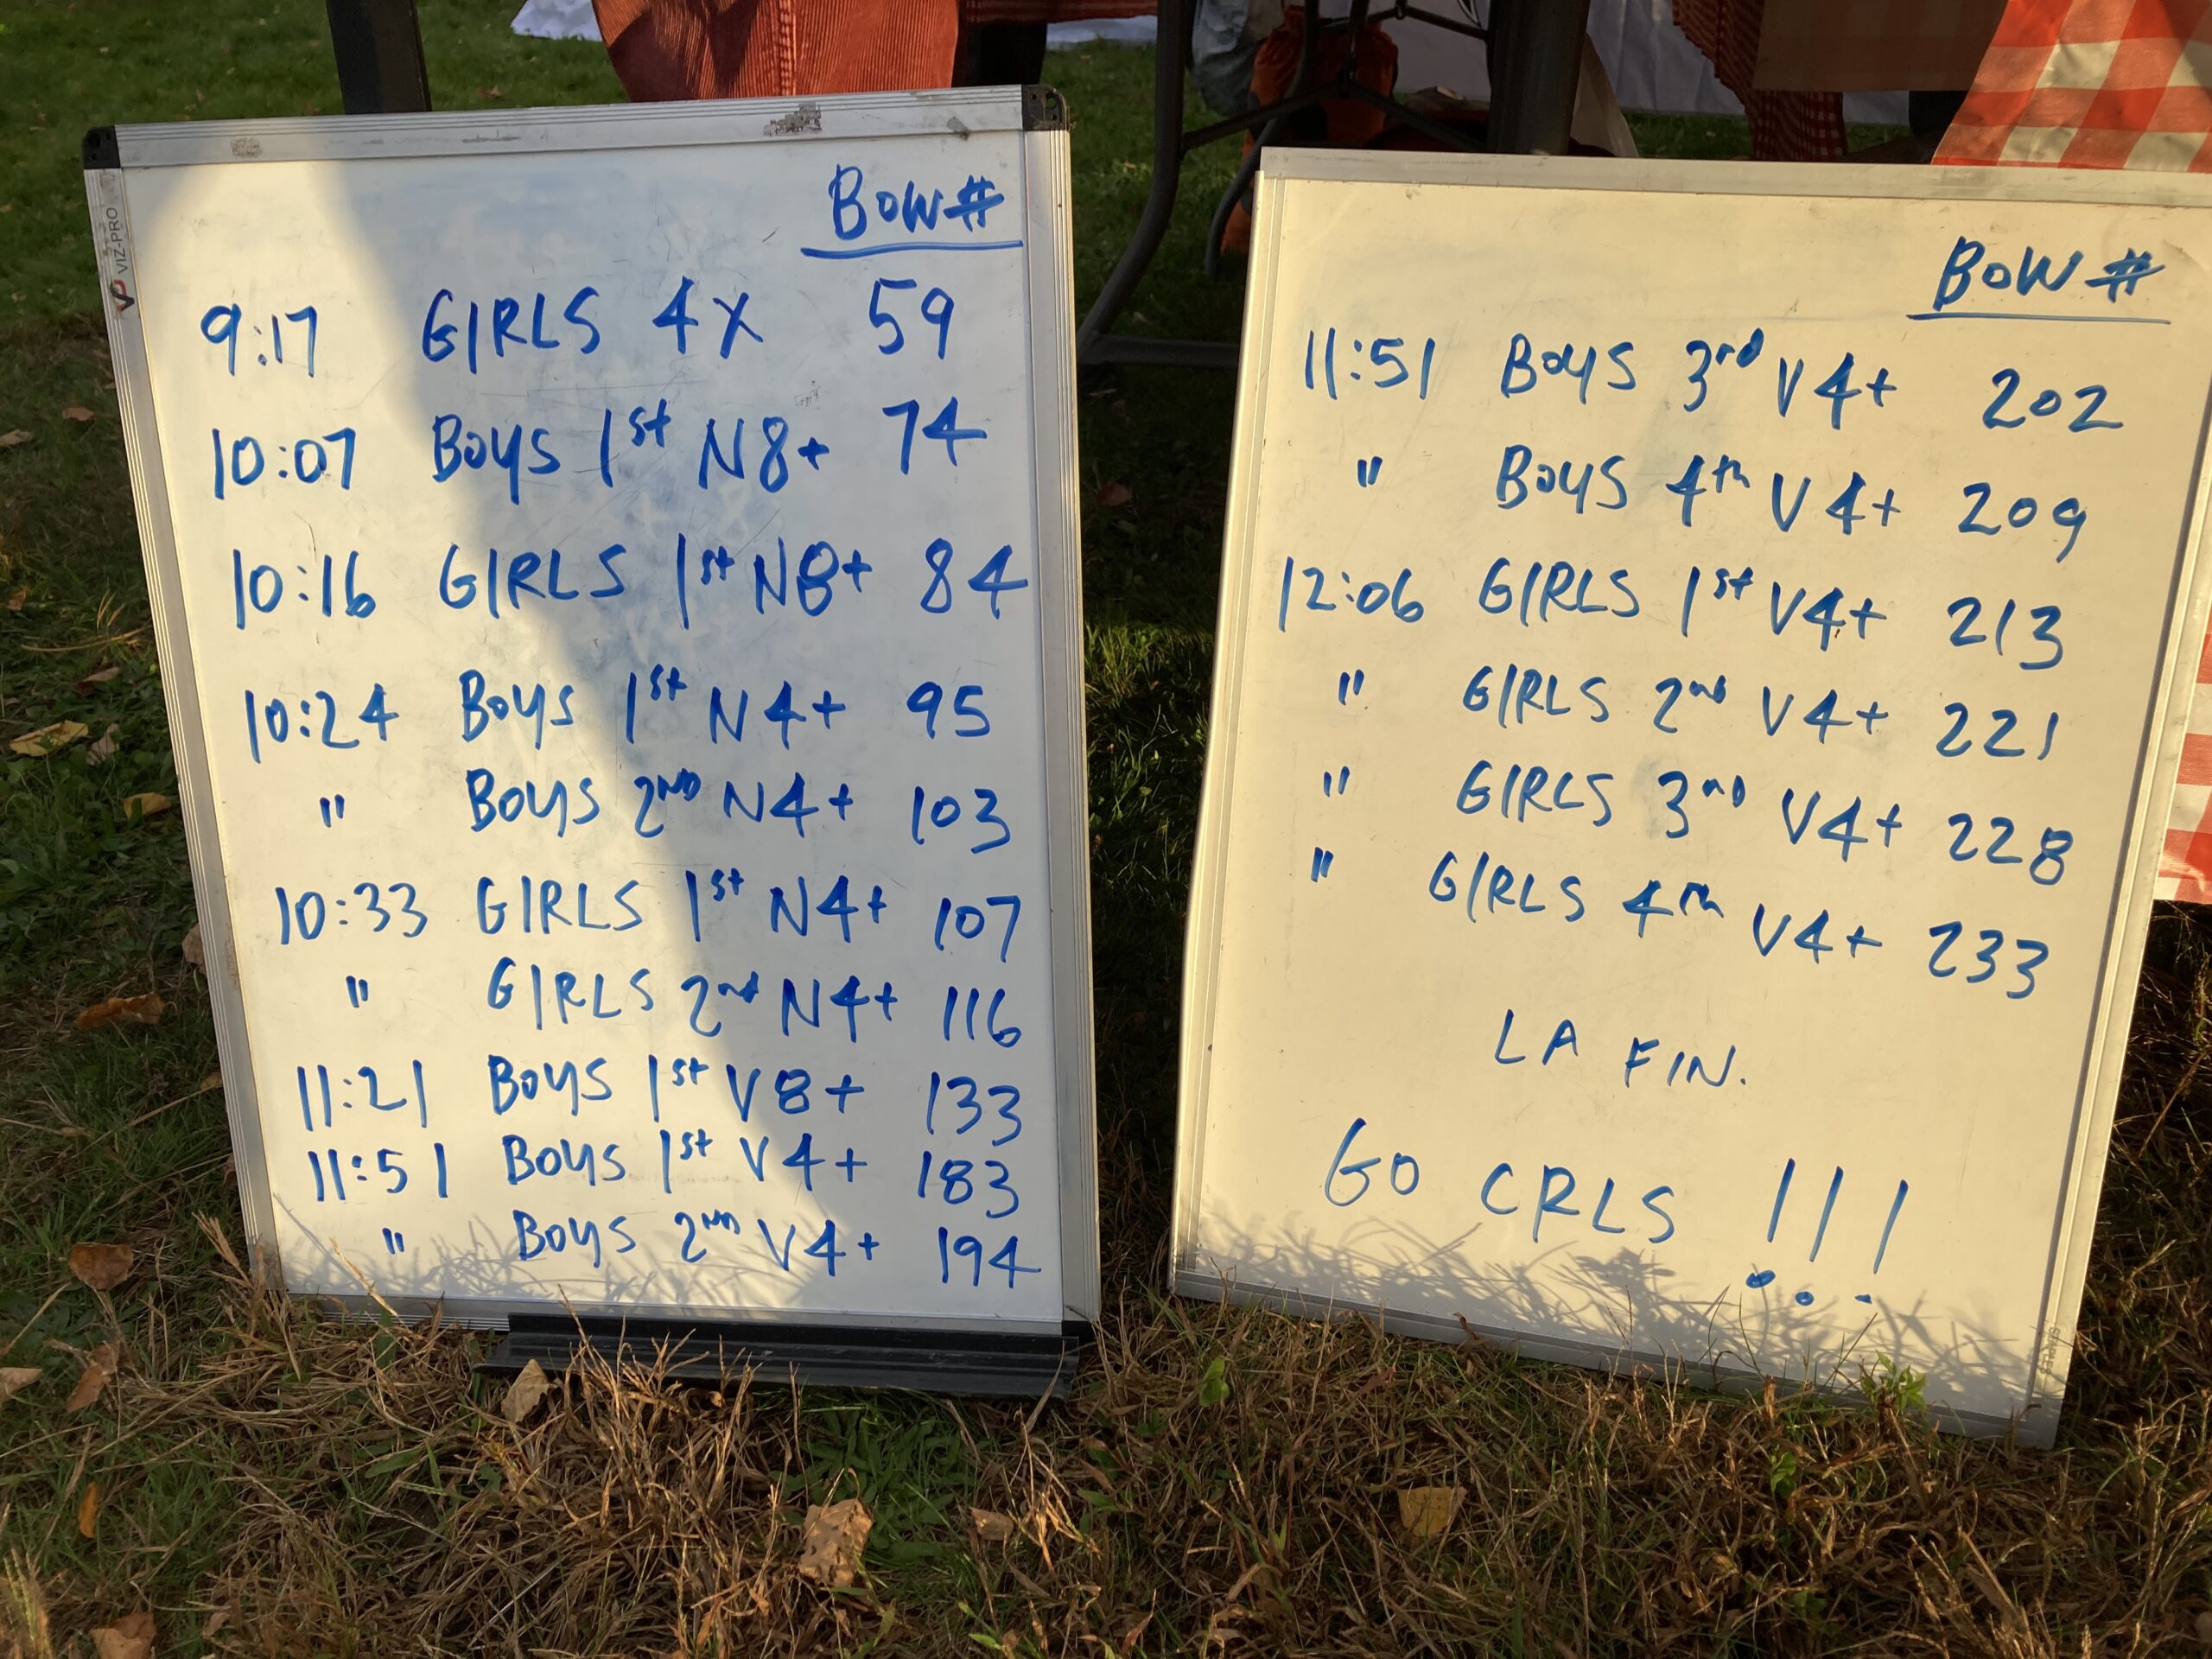 VIZ-PRO
BOW #
9:17 GIRLS 4X 59
10:07 BOYS 1st N8+ 74
10:16 GIRLS 1st N8+ 84
10:24 BOYS 1st N4+ 95
" BOYS 2ND N4+ 103
10:33 GIRLS 1st N4+ 107
" GIRLS 2nd N4+ 116
11:21 BOYS 1st V8+ 133
11:51 BOYS 1st V4+ 183
" BOYS 2ND V4+ 194
BOW #
11:51 BOYS 3rd V4+ 202
" BOYS 4th V4+ 209
12:06 GIRLS 1st V4+ 213
" GIRLS 2nd V4+ 221
" GIRLS 3rd V4+ 228
" GIRLS 4th V4+ 233
LA FIN.
GO CRLS !!!